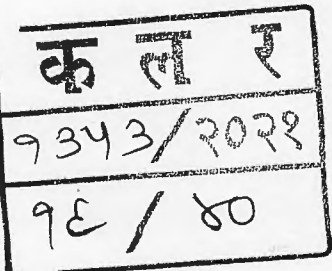 क ल र
१३५३/२०२१
१६ / ४०